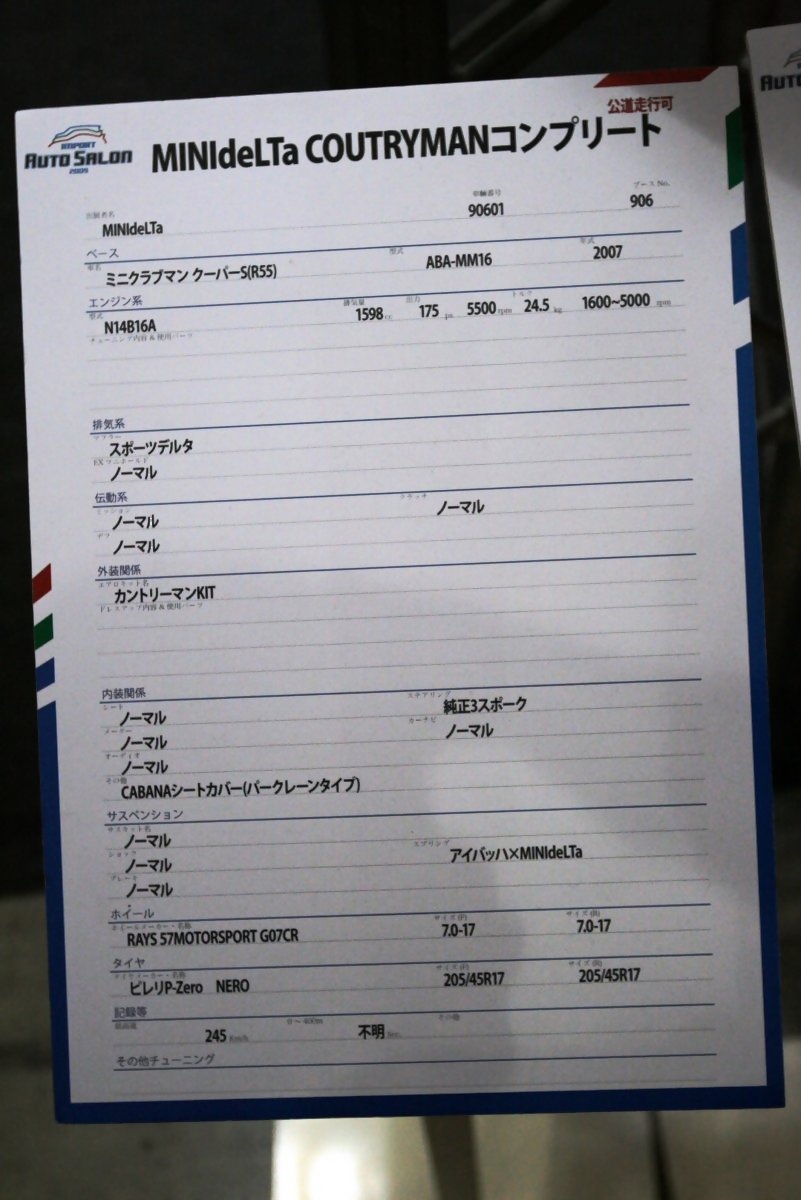 公道走行可
IMPORT
AUTO SALON
2009
MINIdeLTa COUTRYMANコンプリート
出展者名 車輛番号 ブース No.
MINIdeLTa 90601 906
ベース
車名 型式 年式
ミニクラブマン クーパーS(R55) ABA-MM16 2007
エンジン系
型式 排気量 出力 トルク
N14B16A 1598 cc 175 ps 5500 rpm 24.5 kg 1600~5000 rpm
チューニング内容 & 使用パーツ
排気系
マフラー
スポーツデルタ
EX マニホールド
ノーマル
伝動系
ミッション クラッチ
ノーマル ノーマル
デフ
ノーマル
外装関係
エアロキット名
カントリーマンKIT
ドレスアップ内容 & 使用パーツ
内装関係
シート ステアリング
ノーマル 純正3スポーク
メーター カーナビ
ノーマル ノーマル
オーディオ
ノーマル
その他
CABANAシートカバー(パークレーンタイプ)
サスペンション
サスキット名
ノーマル
ショック スプリング
ノーマル アイバッハ×MINIdeLTa
ブレーキ
ノーマル
ホイール
ホイールメーカー・名称 サイズ (F) サイズ (R)
RAYS 57MOTORSPORT G07CR 7.0-17 7.0-17
タイヤ
タイヤメーカー・名称 サイズ (F) サイズ (R)
ピレリP-Zero NERO 205/45R17 205/45R17
記録等
最高速 0〜400m その他
245 Km/h 不明 Sec.
その他チューニング